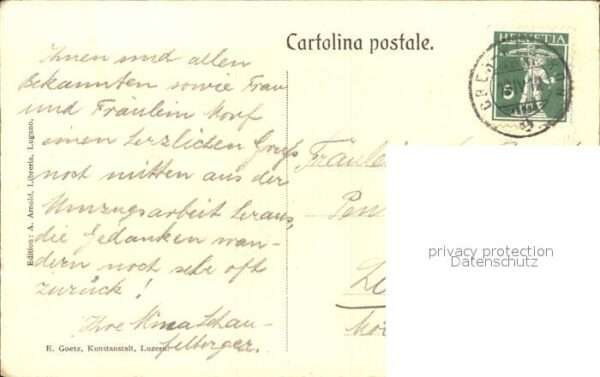 Cartolina postale.
HELVETIA
5
Ihnen und allen
Bekannten sowie Frau
und Fräulein Morf
einen herzlichen Gruss
noch mitten aus der
Umzugsarbeit heraus,
die Gedanken wan-
dern noch sehr oft
zurück!
Ihre Nina Schau-
felberger.
Fräulein
Pen
Edition: A. Arnold, Libreria, Lugano.
E. Goetz, Kunstanstalt, Luzern
privacy protection
Datenschutz